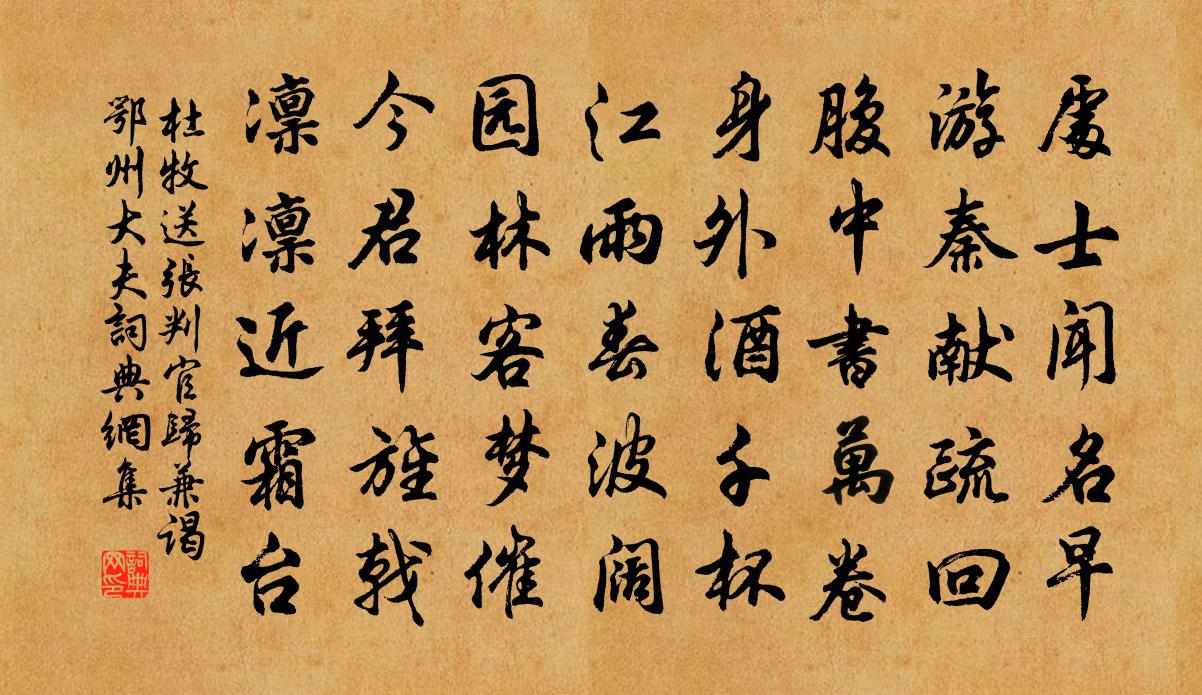 處士闻名早
游秦献疏回
腹中書萬卷
身外酒千杯
江雨春波阔
园林客梦催
今君拜旌戟
凛凛近霜台
杜牧送張判官歸兼谒
鄂州大夫詞典網集
詞典
网印